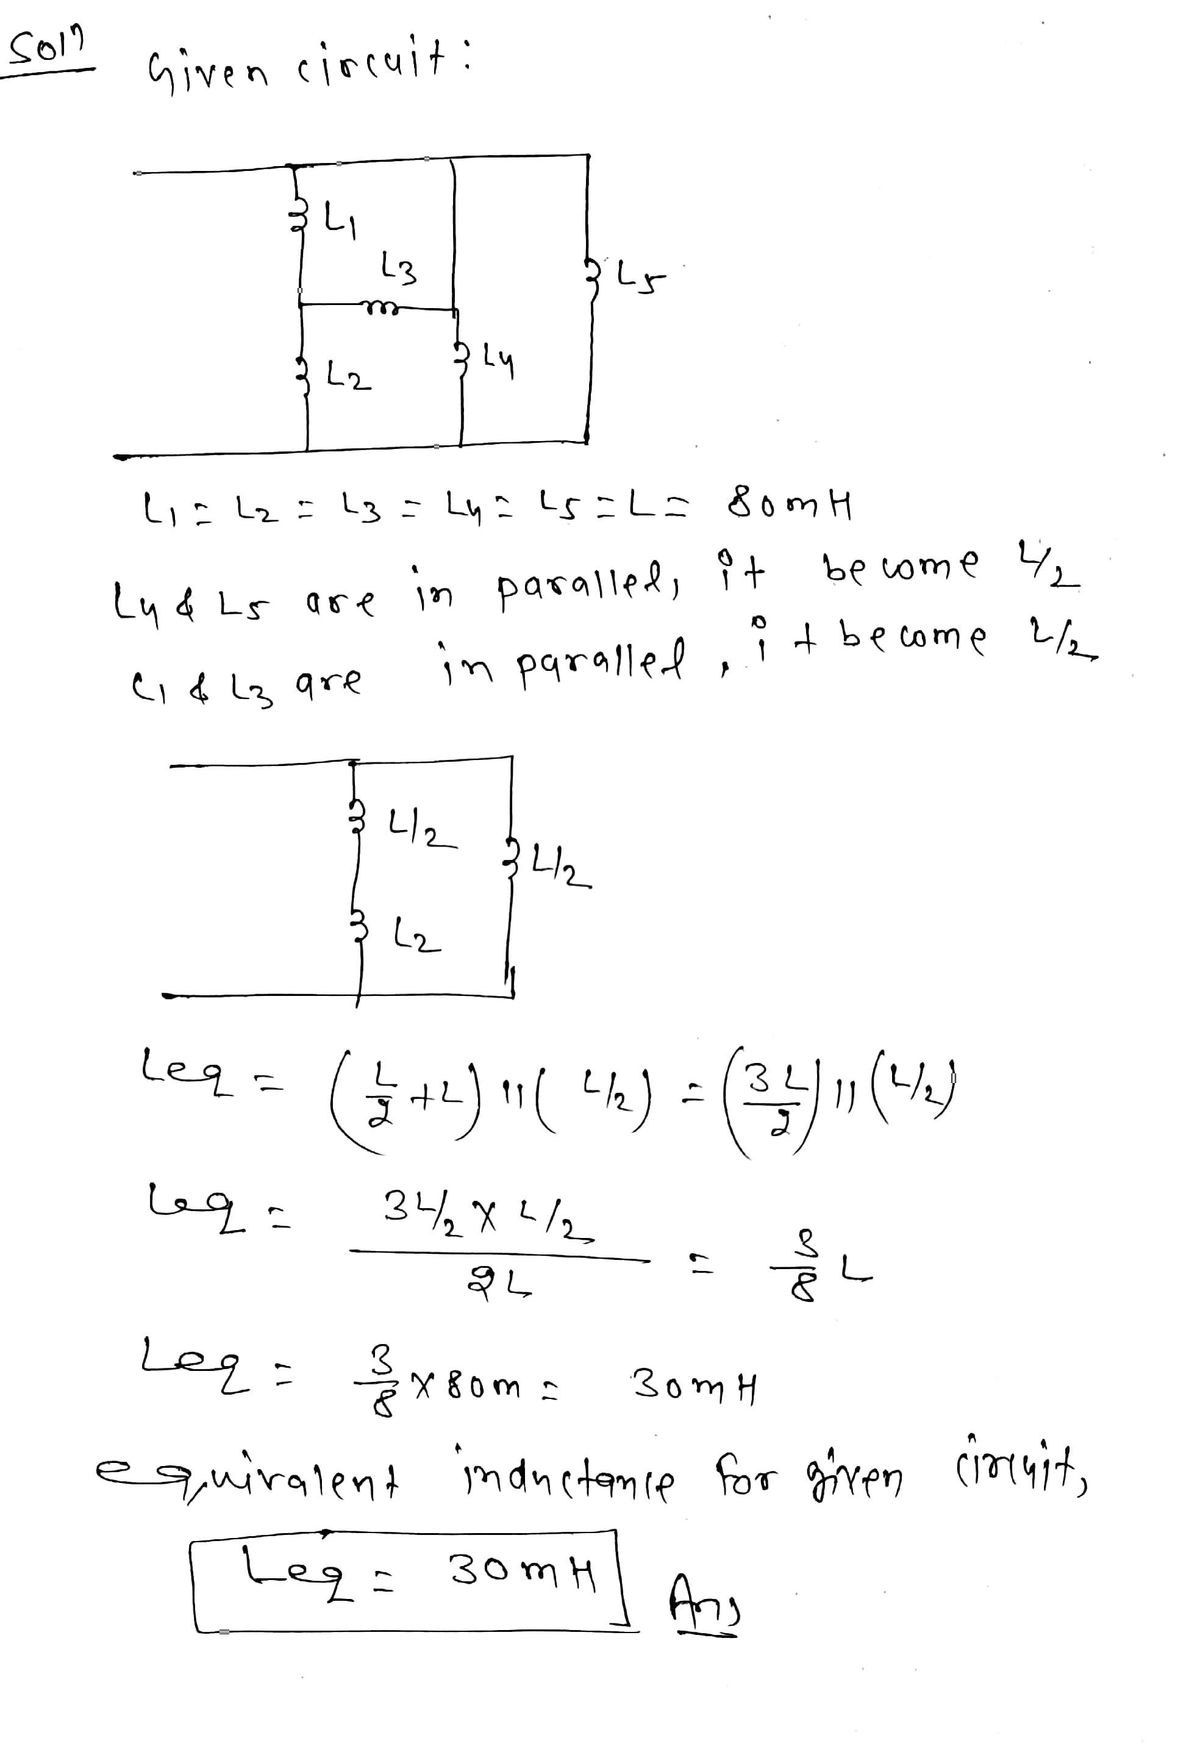 Soln
Given circuit:
L1
L3
L5
L2
L4
L1 = L2 = L3 = L4 = L5 = L = 80mH
L4 & L5 are in parallel, it become L/2
L1 & L3 are in parallel, it become L/2
L/2
L/2
L2
Leq = (L/2 + L) 11 ( L/2) = (3L/2) 11 (L/2)
Leq = 3L/2 X L/2 / 2L = 3/8 L
Leq = 3/8 X 80m = 30mH
equivalent inductance for given circuit,
Leq = 30mH Ans